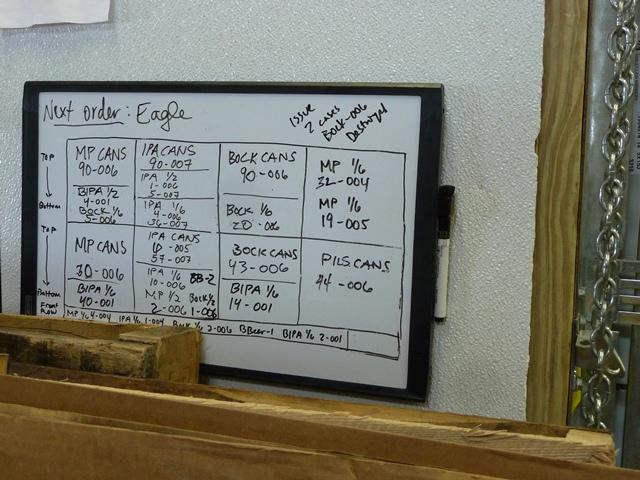 Next order: Eagle
Issue
2 cases
Bock-006
Destroyed
Top
Bottom
MP CANS
90-006
BIPA 1/2
4-001
BOCK 1/6
5-006
IPA CANS
90-007
IPA 1/2
1-006
5-007
IPA 1/6
4-006
36-007
BOCK CANS
90-006
BOCK 1/6
20-006
MP 1/6
32-004
MP 1/6
19-005
Top
Bottom
MP CANS
30-006
BIPA 1/6
40-001
IPA CANS
10-005
57-007
IPA 1/6 BB-2
10-006
MP 1/2 Bock 1/2
2-006 1-006
BOCK CANS
43-006
BIPA 1/6
14-001
PILS CANS
44-006
Front
Row
MP 1/6 4-004 IPA 1/6 1-004 Bock 1/6 2-006 BBeer-1 BIPA 1/6 2-001